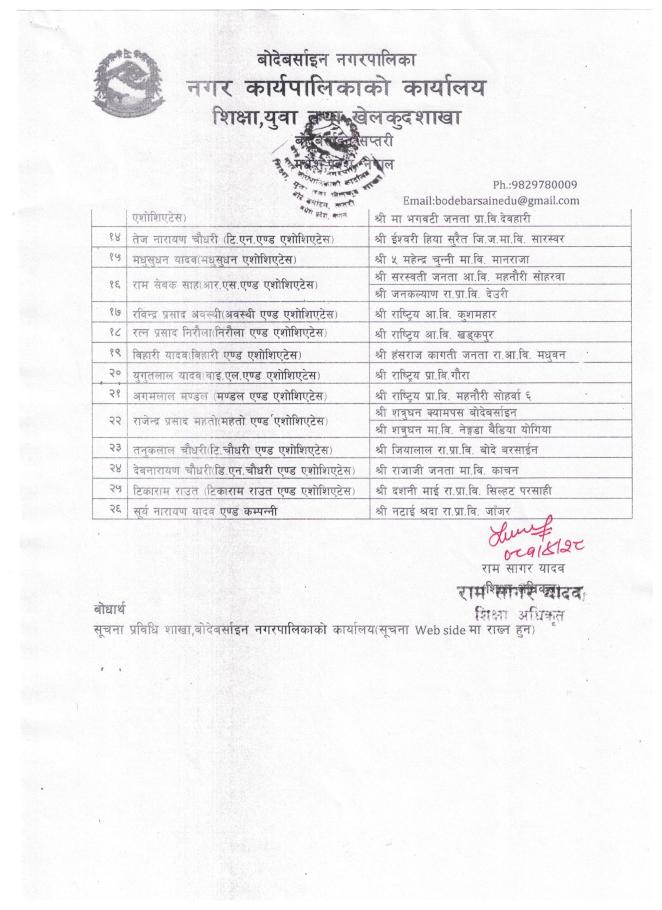 बोदेबर्साइन नगरपालिका
नगर कार्यपालिकाको कार्यालय
शिक्षा,युवा तथा खेलकुदशाखा
सप्तरी
नेपाल
Ph.:9829780009
Email:bodebarsainedu@gmail.com
एशोशिएटेस) श्री मा भगवटी जनता प्रा.वि.देवहारी
१४ तेज नारायण चौधरी (टि.एन.एण्ड एशोशिएटेस) श्री ईश्वरी हिया सुरैत जि.ज.मा.वि. सारस्वर
१५ मधुसुधन यादव(मधुसुधन एशोशिएटेस) श्री ५ महेन्द्र चुन्नी मा.वि. मानराजा
१६ राम सेवक साह(आर.एस.एण्ड एशोशिएटेस) श्री सरस्वती जनता आ.वि. महनौरी सोहरवा
श्री जनकल्याण रा.प्रा.वि. देउरी
१७ रविन्द्र प्रसाद अवस्थी(अवस्थी एण्ड एशोशिएटेस) श्री राष्ट्रिय आ.वि. कुशमहार
१८ रत्न प्रसाद निरौला(निरौला एण्ड एशोशिएटेस) श्री राष्ट्रिय आ.वि. खड्कपुर
१९ बिहारी यादव(बिहारी एण्ड एशोशिएटेस) श्री हंसराज कागती जनता रा.आ.वि. मधुवन
२० युगुतलाल यादव(वाइ.एल.एण्ड एशोशिएटेस) श्री राष्ट्रिय प्रा.वि.गौरा
२१ अगमलाल मण्डल (मण्डल एण्ड एशोशिएटेस) श्री राष्ट्रिय प्रा.वि. महनौरी सोहर्वा ६
२२ राजेन्द्र प्रसाद महतो(महतो एण्ड एशोशिएटेस) श्री शत्रुधन क्यामपस बोदेबर्साइन
श्री शत्रुधन मा.वि. नेङ्गडा बैडिया योगिया
२३ तनुकलाल चौधरी(टि.चौधरी एण्ड एशोशिएटेस) श्री जियालाल रा.प्रा.वि. बोदे बरसाईन
२४ देवनारायण चौधरी(डि.एन.चौधरी एण्ड एशोशिएटेस) श्री राजाजी जनता मा.वि. काचन
२५ टिकाराम राउत (टिकाराम राउत एण्ड एशोशिएटेस) श्री दशनी माई रा.प्रा.वि. सिल्हट परसाही
२६ सूर्य नारायण यादव एण्ड कम्पन्नी श्री नटाई श्रदा रा.प्रा.वि. जाँजर
राम सागर यादव
राम सागर यादव
शिक्षा अधिकृत
बोधार्थ
सूचना प्रविधि शाखा,बोदेबर्साइन नगरपालिकाको कार्यालय(सूचना Web side मा राख्न हुन)